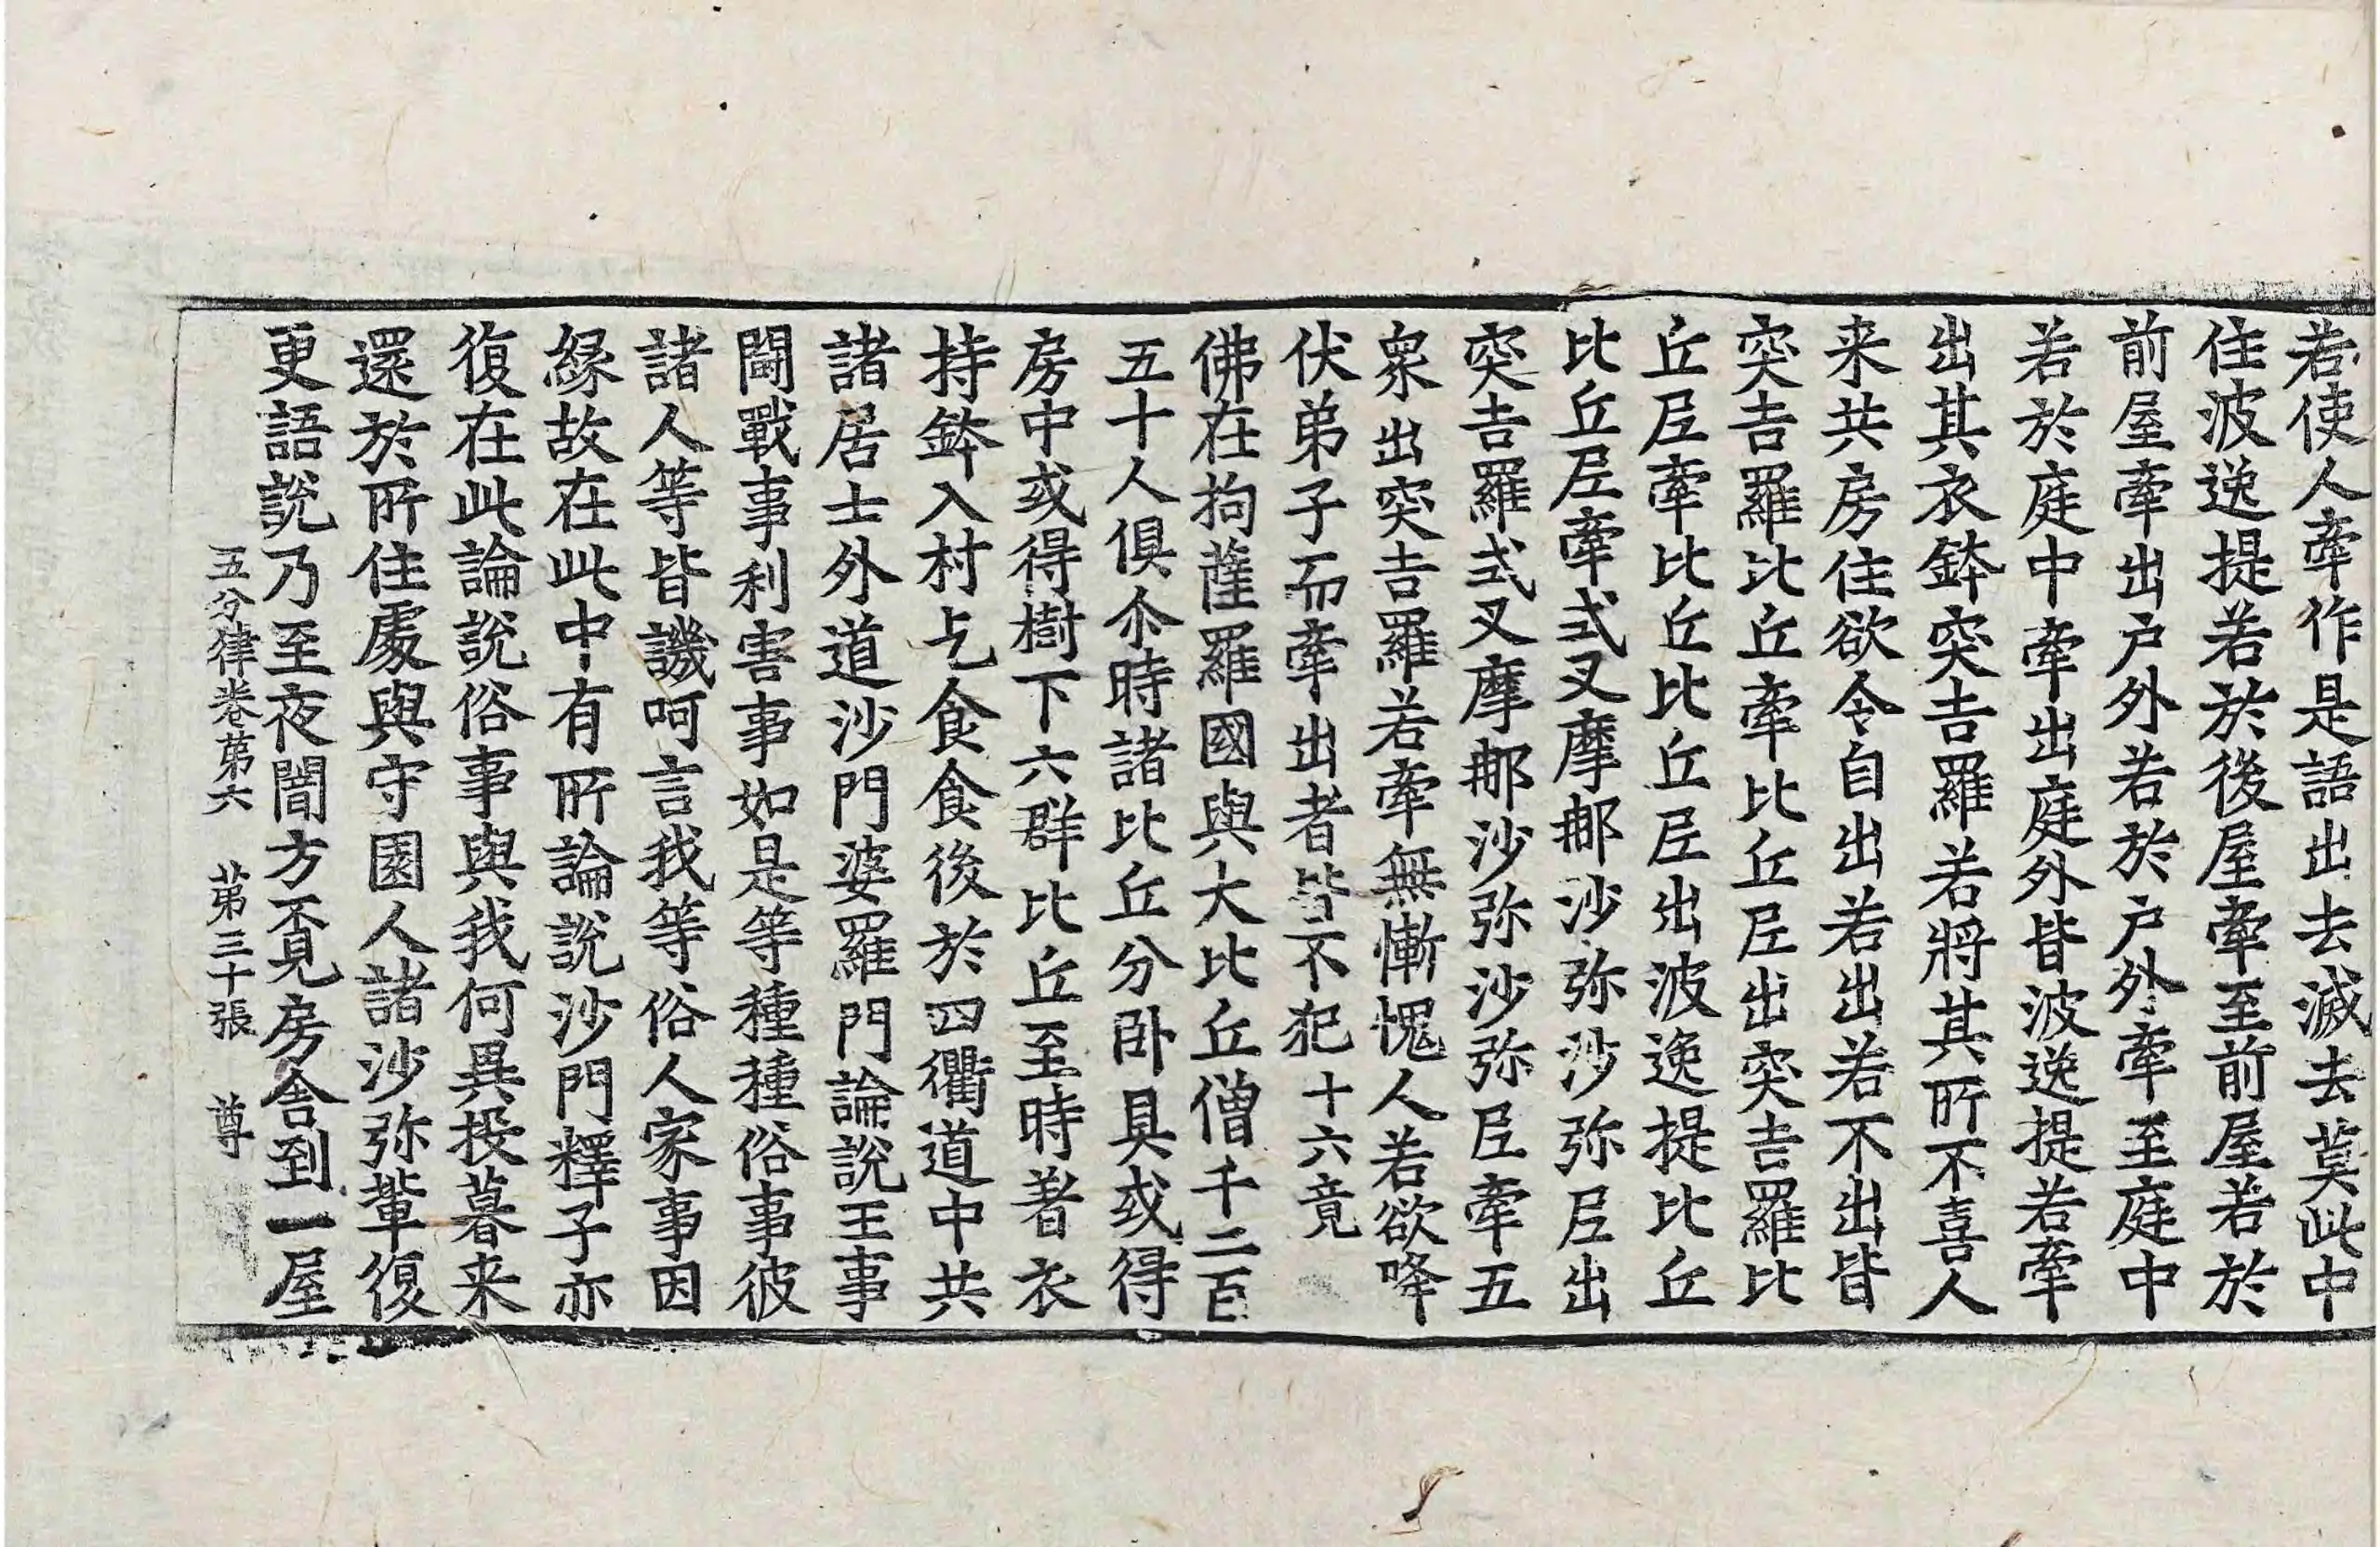 若使人牽作是語出去滅去莫此中
住波逸提若於後屋牽至前屋若於
前屋牽出户外若於户外牽至庭中
若於庭中牽出庭外皆波逸提若牽
出其衣鉢突吉羅若將其所不喜人
来共房住欲令自出若出若不出皆
突吉羅比丘牽比丘尼出突吉羅比
丘尼牽比丘比丘尼出波逸提比丘
比丘尼牽式叉摩那沙弥沙弥尼出
突吉羅式叉摩那沙弥沙弥尼牽五
衆出突吉羅若牽無慚愧人若欲降
伏弟子而牽出者皆不犯十六竟
佛在拘薩羅國與大比丘僧千二百
五十人俱尒時諸比丘分卧具或得
房中或得樹下六群比丘至時著衣
持鉢入村乞食食後於四衢道中共
諸居士外道沙門婆羅門論説王事
鬪戰事利害事如是等種種俗事彼
諸人等皆譏呵言我等俗人家事因
緣故在此中有所論説沙門釋子亦
復在此論説俗事與我何異投暮来
還於所住處與守園人諸沙弥輩復
更語説乃至夜闇方覓房舍到一屋
五分律卷第六 第三十張 尊